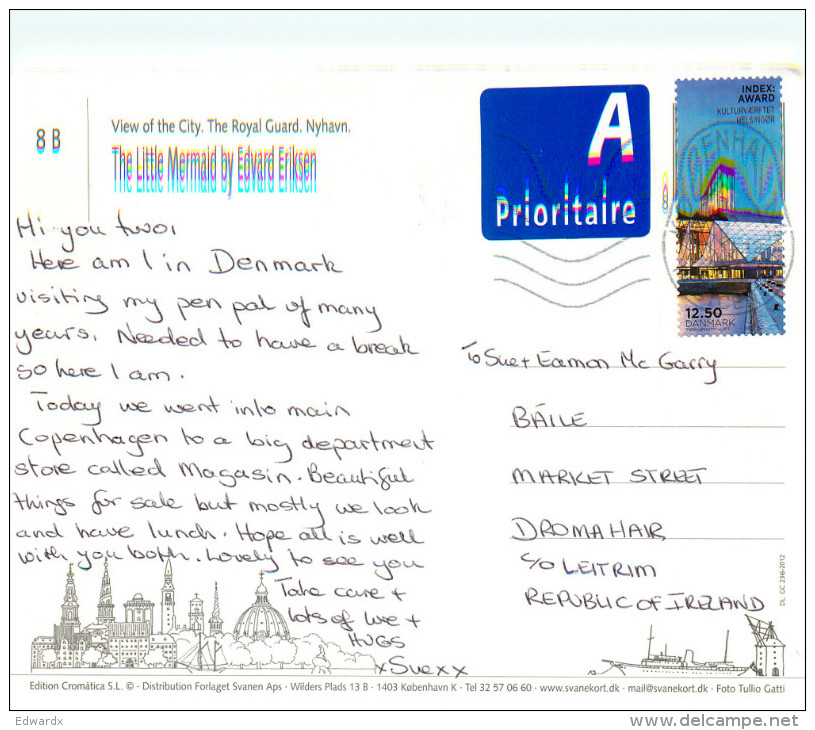 8 B
View of the City. The Royal Guard. Nyhavn.
The Little Mermaid by Edvard Eriksen
A
Prioritaire
INDEX:
AWARD
KULTURVÆRFTET
HELSINGØR
12.50
DANMARK
Hi you two,
Here am I in Denmark
visiting my pen pal of many
years. Needed to have a break
so here I am.
Today we went into main
Copenhagen to a big department
store called Magasin. Beautiful
things for sale but mostly we look
and have lunch. Hope all is well
with you both. Lovely to see you
Take care +
lots of love +
HUGS
x Sue x x
To Sue + Eamon Mc Garry
BÁILE
MARKET STREET
DROMAHAIR
C/O LEITRIM
REPUBLIC OF IRELAND
DL. GC 236-2012
Edition Cromática S.L. © · Distribution Forlaget Svanen Aps · Wilders Plads 13 B · 1403 København K · Tel 32 57 06 60 · www.svanekort.dk · mail@svanekort.dk · Foto Tullio Gatti
Edwardx
www.delcampe.net